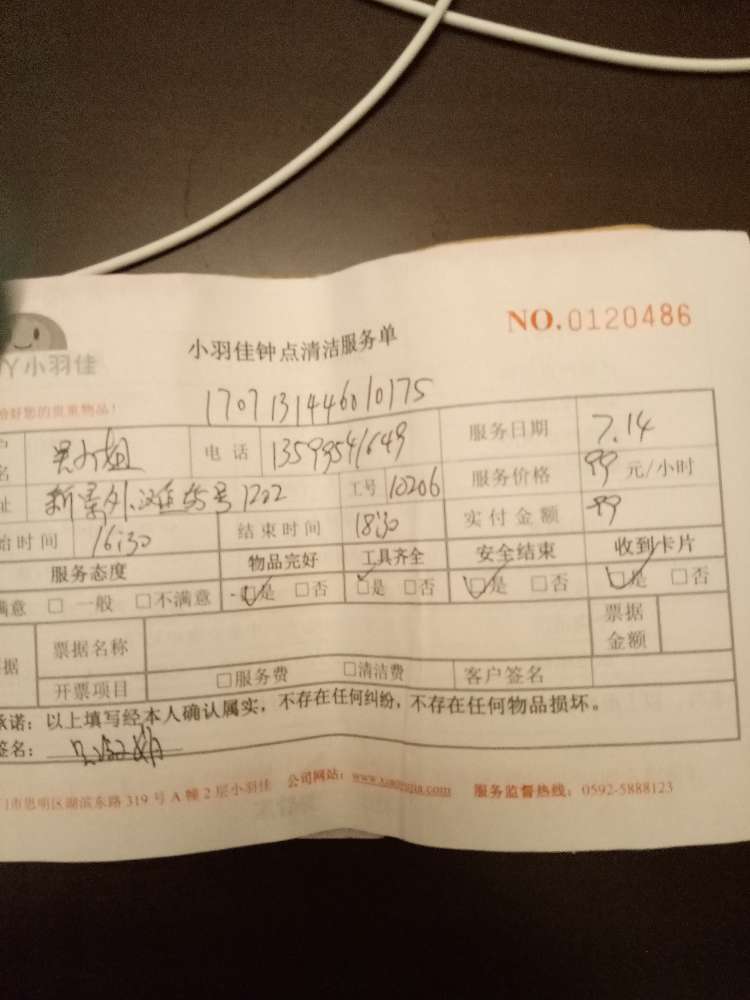 NO.0120486
小羽佳钟点清洁服务单
丫小羽佳
好您的贵重物品!
170713144601 0175
名 吴小姐 电话 服务日期 7.14
址 工号 10206 服务价格 99 元/小时
始时间 16:30 结束时间 18:30 实付金额 99
服务态度 物品完好 工具齐全 安全结束 收到卡片
满意 □ 一般 □不满意 □是 □否 □是 □否 □是 □否 □是 □否
据 票据名称 票据金额
开票项目 □服务费 □清洁费 客户签名
承诺: 以上填写经本人确认属实,不存在任何纠纷,不存在任何物品损坏。
签名:
门市思明区湖滨东路 319 号 A 幢 2 层小羽佳 公司网站: www.xiaoyujia.com 服务监督热线: 0592-5888123